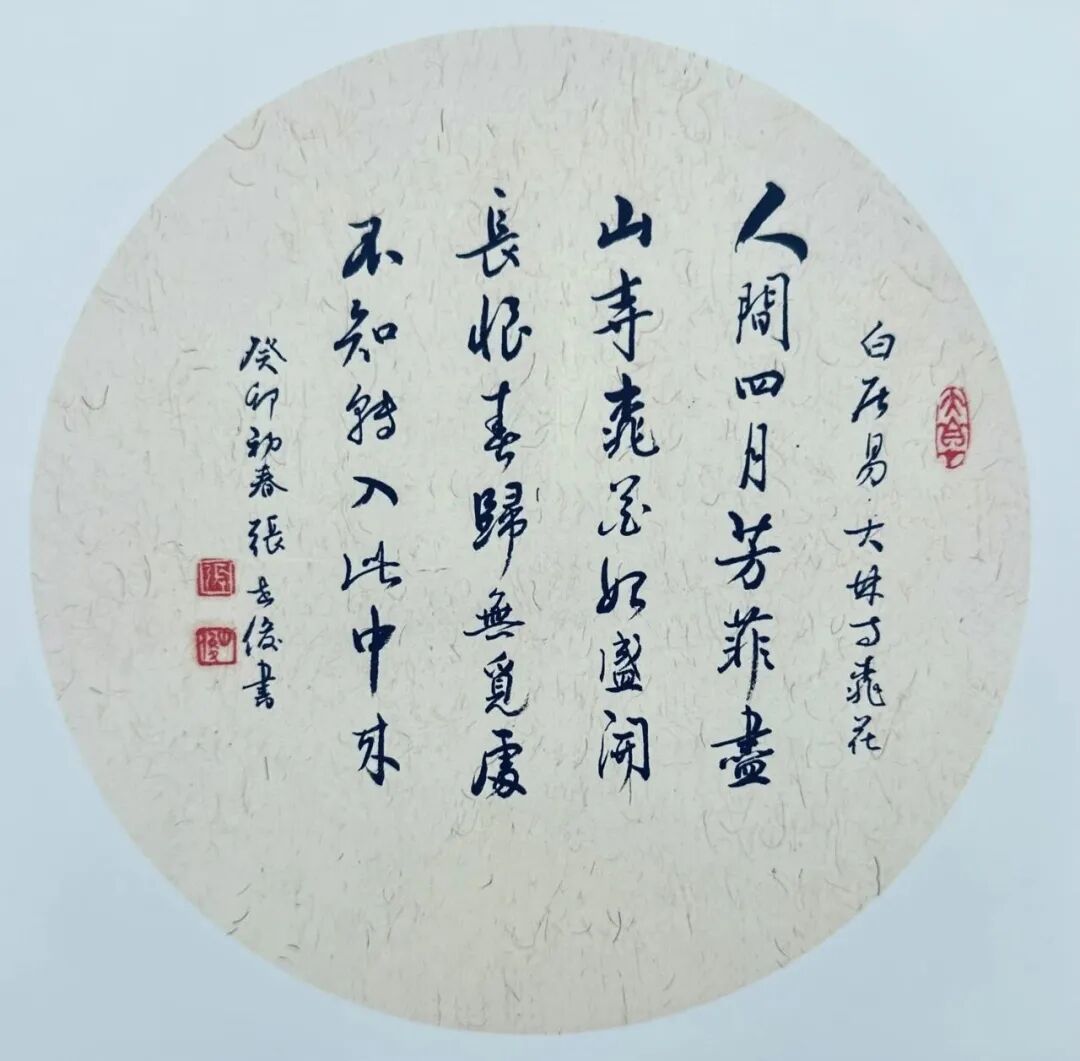 白居易·大林寺桃花
人間四月芳菲盡
山寺桃花始盛開
長恨春歸無覓處
不知轉入此中來
癸卯初春張俊書